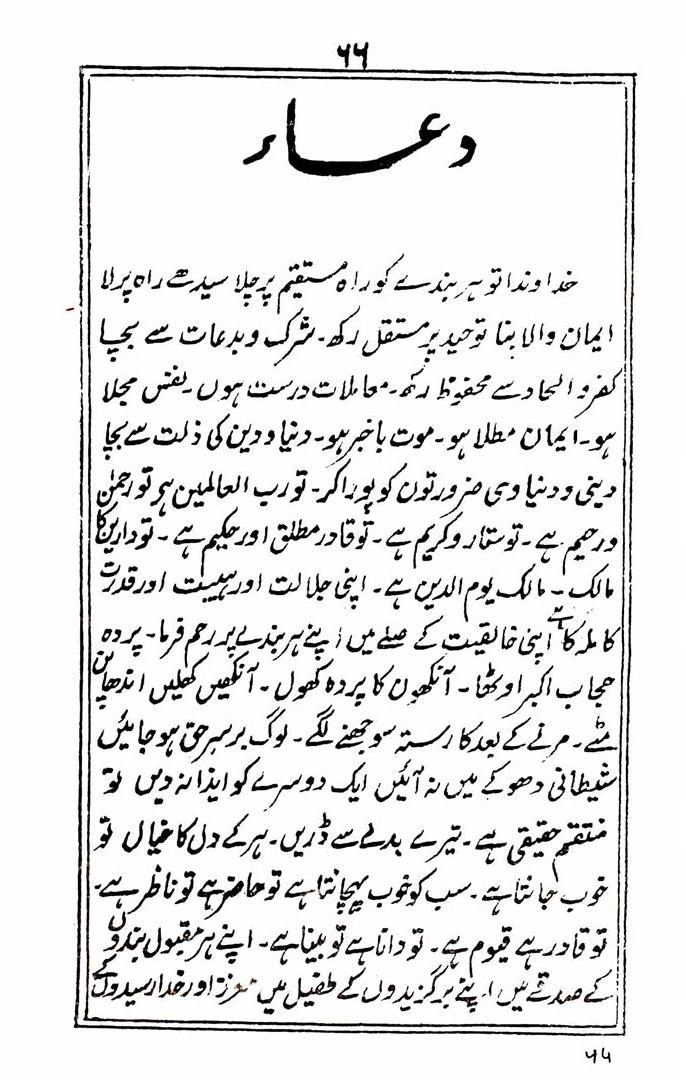 ۶۶
دعاء
خداوندا تو ہر بندے کو راہ مستقیم پر چلا سیدھے راہ پر لا
ایمان والا بنا توحید پر مستقل رکھ۔ شرک و بدعات سے بچا
کفر و الحاد سے محفوظ رکھ۔ معاملات درست ہوں۔ نفس مجلا
ہو۔ ایمان مطلا ہو۔ موت باخبر ہو۔ دنیا و دین کی ذلت سے بچا
دینی و دنیاوی ضرورتوں کو پورا کر۔ تو رب العالمین ہے تو رحمٰن
و رحیم ہے۔ تو ستار و کریم ہے۔ تو قادر مطلق اور حکیم ہے۔ تو دارین کا
مالک۔ مالک یوم الدین ہے۔ اپنی جلالت اور ہیبت اور قدرت
کاملہ کا ہے اپنی خالقیت کے صلے میں اپنے ہر بندے پر رحم فرما۔ پردہ
حجاب اکبر اوٹھا۔ آنکھوں کا پردہ کھول۔ آنکھیں کھلیں اندھاپن
مٹے۔ مرنے کے بعد کا رستہ سوجھنے لگے۔ لوگ برسر حق ہو جائیں
شیطانی دھوکے میں نہ آئیں ایک دوسرے کو ایذا نہ دیں تو
منتقم حقیقی ہے۔ تیرے بدلے سے ڈریں۔ ہر کے دل کا خیال تو
خوب جانتا ہے۔ سب کو خوب پہچانتا ہے تو حاضر ہے تو ناظر ہے۔
تو قادر ہے قیوم ہے۔ تو دانا ہے تو بینا ہے۔ اپنے ہر مقبول بندوں
کے صدقے میں اپنے برگزیدوں کے طفیل میں معزز اور خدا رسیدوں کے
۶۵